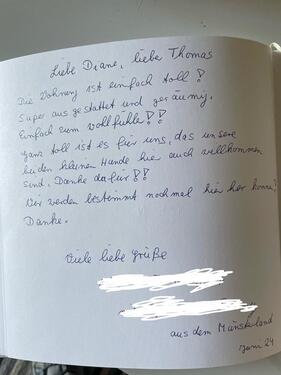 Liebe Diane, liebe Thomas
Die Wohnung ist einfach toll!
Super ausgestattet und geräumig.
Einfach zum wohlfühle!!
Ganz toll ist es für uns, das unsere
beiden kleinen Hunde hier auch willkommen
sind. Danke dafür!!
Wir werden bestimmt nochmal hier her
Danke.
Viele liebe Grüße
aus dem Münsterland
Juni 24